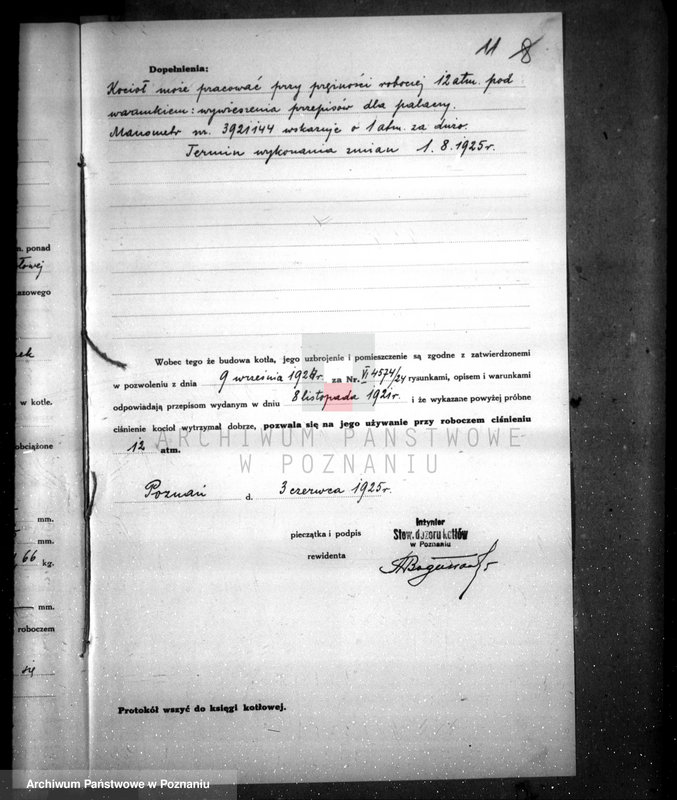 11 8
Dopełnienia:
Kocioł może pracować przy prężności roboczej 12 atm. pod
warunkiem: wywieszenia przepisów dla palaczy.
Manometr nr. 3921144 wskazuje o 1 atm. za dużo.
Termin wykonania zmian 1.8.1925r.
n. ponad
azowego
w kotle.
obciążone
mm.
mm.
66 kg.
mm.
roboczem
się
Wobec tego że budowa kotła, jego uzbrojenie i pomieszczenie są zgodne z zatwierdzonemi
w pozwoleniu z dnia 9 września 1924r. za Nr. VI 4574/24 rysunkami, opisem i warunkami
odpowiadają przepisom wydanym w dniu 8 listopada 1921r. i że wykazane powyżej próbne
ciśnienie kocioł wytrzymał dobrze, pozwala się na jego używanie przy roboczem ciśnieniu
12 atm.
ARCHIWUM PAŃSTWOWE
W POZNANIU
Poznań d. 3 czerwca 1925r.
pieczątka i podpis
rewidenta
Inżynier
Stow. dozoru kotłów
w Poznaniu
Protokół wszyć do księgi kotłowej.
Archiwum Państwowe w Poznaniu